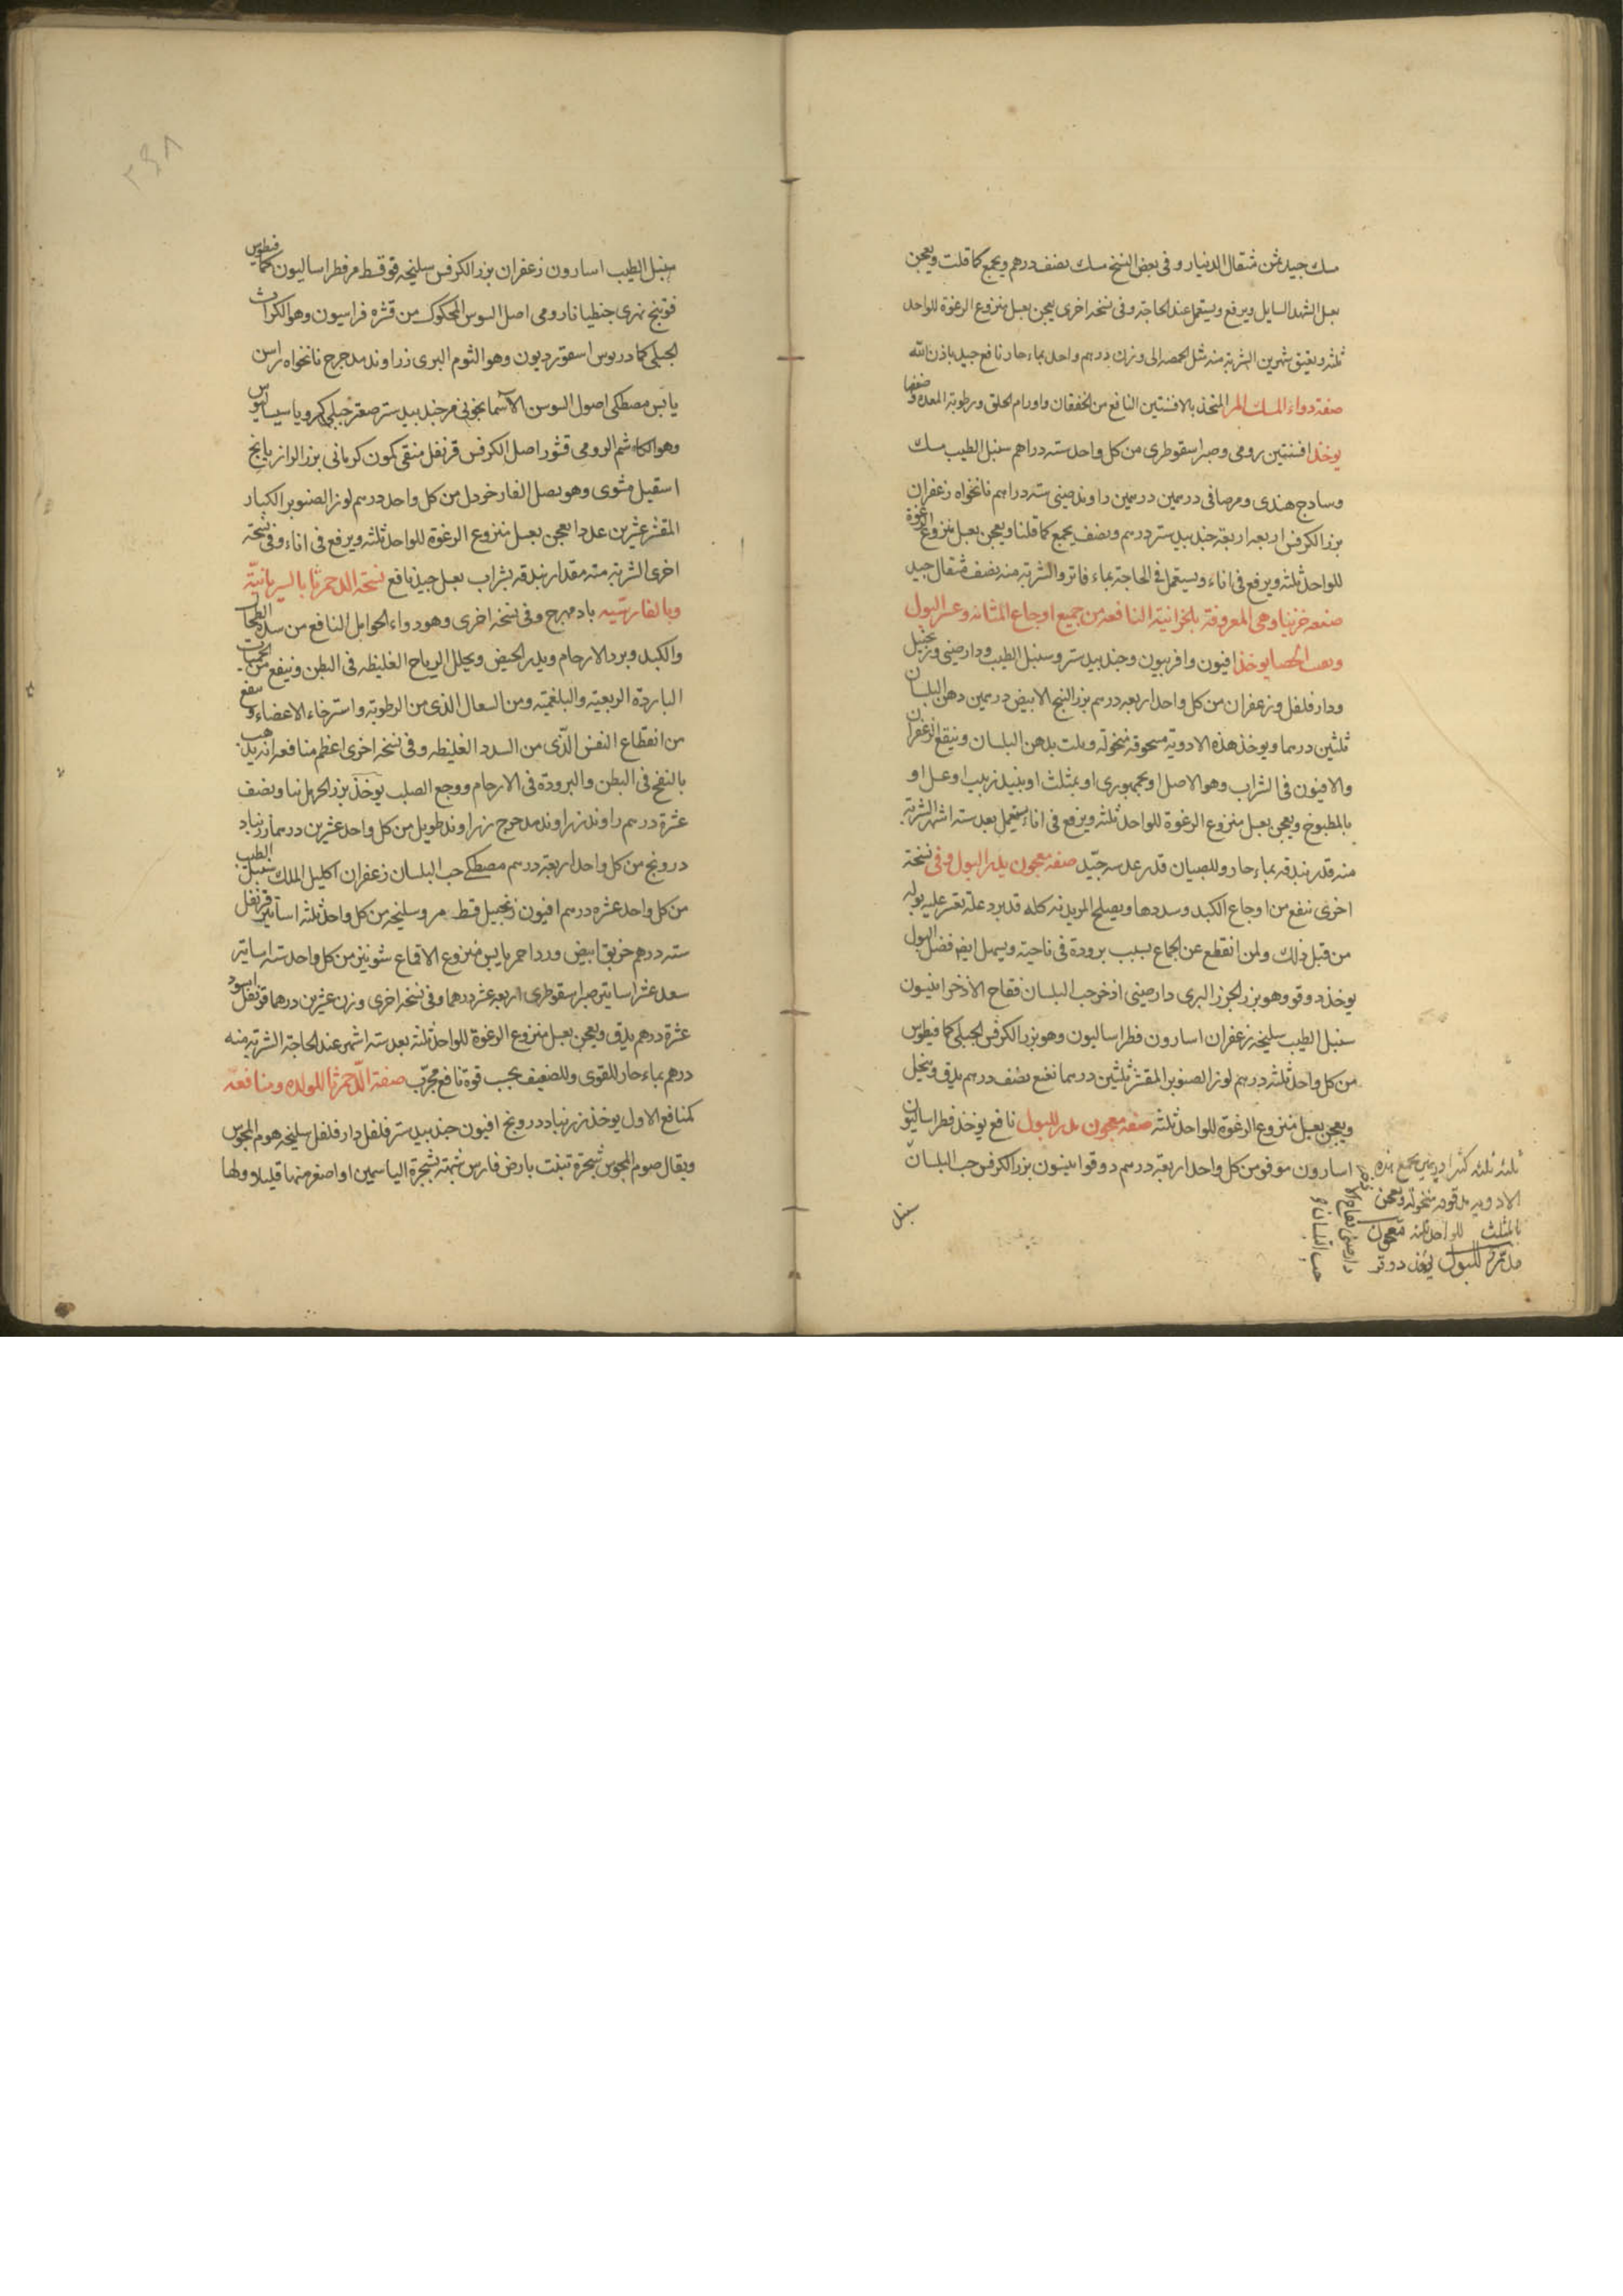 مسك جيد ثمن مثقال الدينار وفى بعض النسخ مسك نصف درهم ويجمع كما قلت ويعجن
بعسل الشهد السايل ويرفع ويستعمل عند الحاجة وفى نسخه اخرى يعجن بعسل منزوع الرغوة للواحد
ثلثه ويعتق شهرين الشربة منه مثل الحمصه الى وزن درهم واحد بماء حار نافع جيد باذن الله
صفة دواء المسك المر المتخذ بالافسنتين النافع من الخفقان واورام الحلق ورطوبة المعده وضعفها
يوخذ افسنتين رومى وصبر اسقوطرى من كل واحد سته دراهم سنبل الطيب مسك
وسادج هندى ومر صافى درهمين درهمين راوند صينى سته دراهم نانخواه زعفران
بزر الكرفس اربعه اربعة جندبيدستر درهم ونصف يجمع كما قلنا ويعجن بعسل منزوع الرغوة
للواحد ثلثه ويرفع فى اناء ويستعمل فى الحاجة بماء فاتر والشربة منه نصف مثقال جيد
صفه خزنبا وهى المعروفة بالخزانية النافعه من جميع اوجاع المثانه وعسر البول
وتفتت الحصا يوخذ افيون وافربيون وجندبيدستر وسنبل الطيب ودارصينى وزنجبيل
ودارفلفل وزعفران من كل واحد اربعه درهم بزر البنج الابيض درهمين دهن البلسان
ثلثين درهما ويوخذ هذه الادوية مسحوقه منخولة ويلت بدهن البلسان وينقع الزعفران
والافيون فى الشراب وهو الاصل او بجمهورى او بمثلث او بنبيذ زبيب او عسل او
بالمطبوخ ويعجن بعسل منزوع الرغوة للواحد ثلثه ويرفع فى اناء يستعمل بعد سته اشهر الشربة
منه قدر بندقه بماء حار وللصبيان قدر عدسه جيد صفه معجون يدر البول وفى نسخة
اخرى ينفع من اوجاع الكبد وسددها ويصلح لمن بدنه كله قد برد علة تعسر عليه بوله
من قبل ذلك ولمن انقطع عن الجماع بسبب برودة فى ناحيته ويسهل ايضا فضل البول
يوخذ دوقو وهو بزر الجزر البرى دارصينى اذخر حب البلسان فقاح الاذخر انيسون
سنبل الطيب سليخه زعفران اسارون فطراساليون وهو بزر الكرفس الجبلى كمافيطوس
من كل واحد ثلثه درهم لوز الصنوبر المقشر ثلثين درهما نعنع نصف درهم يدق وينخل
ويعجن بعسل منزوع الرغوة للواحد ثلثه صفه معجون مدر للبول نافع يوخذ فطراساليون
اسارون مو فو من كل واحد اربعة درهم دوقو انيسون بزر الكرفس حب البلسان
سنبل
ثلثه ثلثه كثيرا درهمين يجمع هذه
الادويه مدقوقه منخولة ويعجن
بالمثلث للواحد ثلثه معجون
مدر للبول يؤخذ دوقو
دارصينى فقاح الاذخر
حب البلسان و
سنبل الطيب اسارون زعفران بزر الكرفس سليخه فو قسط مر فطراساليون كمافيطوس
فوتنج نهرى جنطيانا رومى اصل السوس المحكوك من قشره فراسيون وهو الكراث
الجبلى كمادريوس اسقورديون وهو الثوم البرى زراوند مدحرج نانخواه راسن
يابس مصطكى اصول السوسن الاسمانجونى مر جندبيدستر صعتر جبلى كرويا سيساليوس
وهو الكاشم الرومى قشور اصل الكرفس قرنفل منقى كمون كرمانى بزر الرازيانج
اسقيل مشوى وهو بصل الفار خردل من كل واحد درهم لوز الصنوبر الكبار
المقشر عشرين عددا يعجن بعسل منزوع الرغوة للواحد ثلثه ويرفع فى اناء وفى نسخة
اخرى الشربة منه مقدار بندقه بشراب بعسل جيد نافع نسخه الدحمرثا بالسريانية
وبالفارسيه باد مهرج وفى نسخه اخرى وهو دواء الحوامل النافع من سدد الطحال
والكبد وبرد الارحام ويدر الحيض ويحلل الرياح الغليظه فى البطن وينفع من الحميات
الباردة الربعية والبلغمية ومن السعال الذى من الرطوبة واسترخاء الاعضاء وينفع
من انقطاع النفس الذى من السدد الغليظه وفى نسخه اخرى اعظم منافعه انه يذهب
بالنفخ فى البطن والبرودة فى الارحام ووجع الصلب يوخذ بزر الحرمل نيا ونصف
عشرة درهم راوند زراوند مدحرج زراوند طويل من كل واحد عشرين درهما زرنباد
درونج من كل واحد اربعة درهم مصطكى حب البلسان زعفران اكليل الملك سنبل الطيب
من كل واحد عشره درهم افيون زنجبيل قسط مر وسليخه من كل واحد ثلثه اساتير قرنفل
سته درهم خربق ابيض ورد احمر يابس منزوع الاقماع شونيز من كل واحد سته اساتير
سعد عشر اساتير صبر اسقوطرى اربعه عشر درهما وفى نسخه اخرى وزن عشرين درهما قرنفل اسود
عشرة درهم يدق ويعجن بعسل منزوع الرغوة للواحد ثلثه بعد سته اشهر عند الحاجة الشربة منه
درهم بماء حار للقوى وللضعيف بحسب قوة نافع مجرب صفة الدحمرثا المولده ومنافعه
كمنافع الاول يوخذ زرنباد درونج افيون جندبيدستر فلفل دارفلفل سليخه هوم المجوس
ويقال صوم المجوس شجرة تنبت بارض فارس شبهته بشجرة الياسمين او اصغر منها قليلا ولها